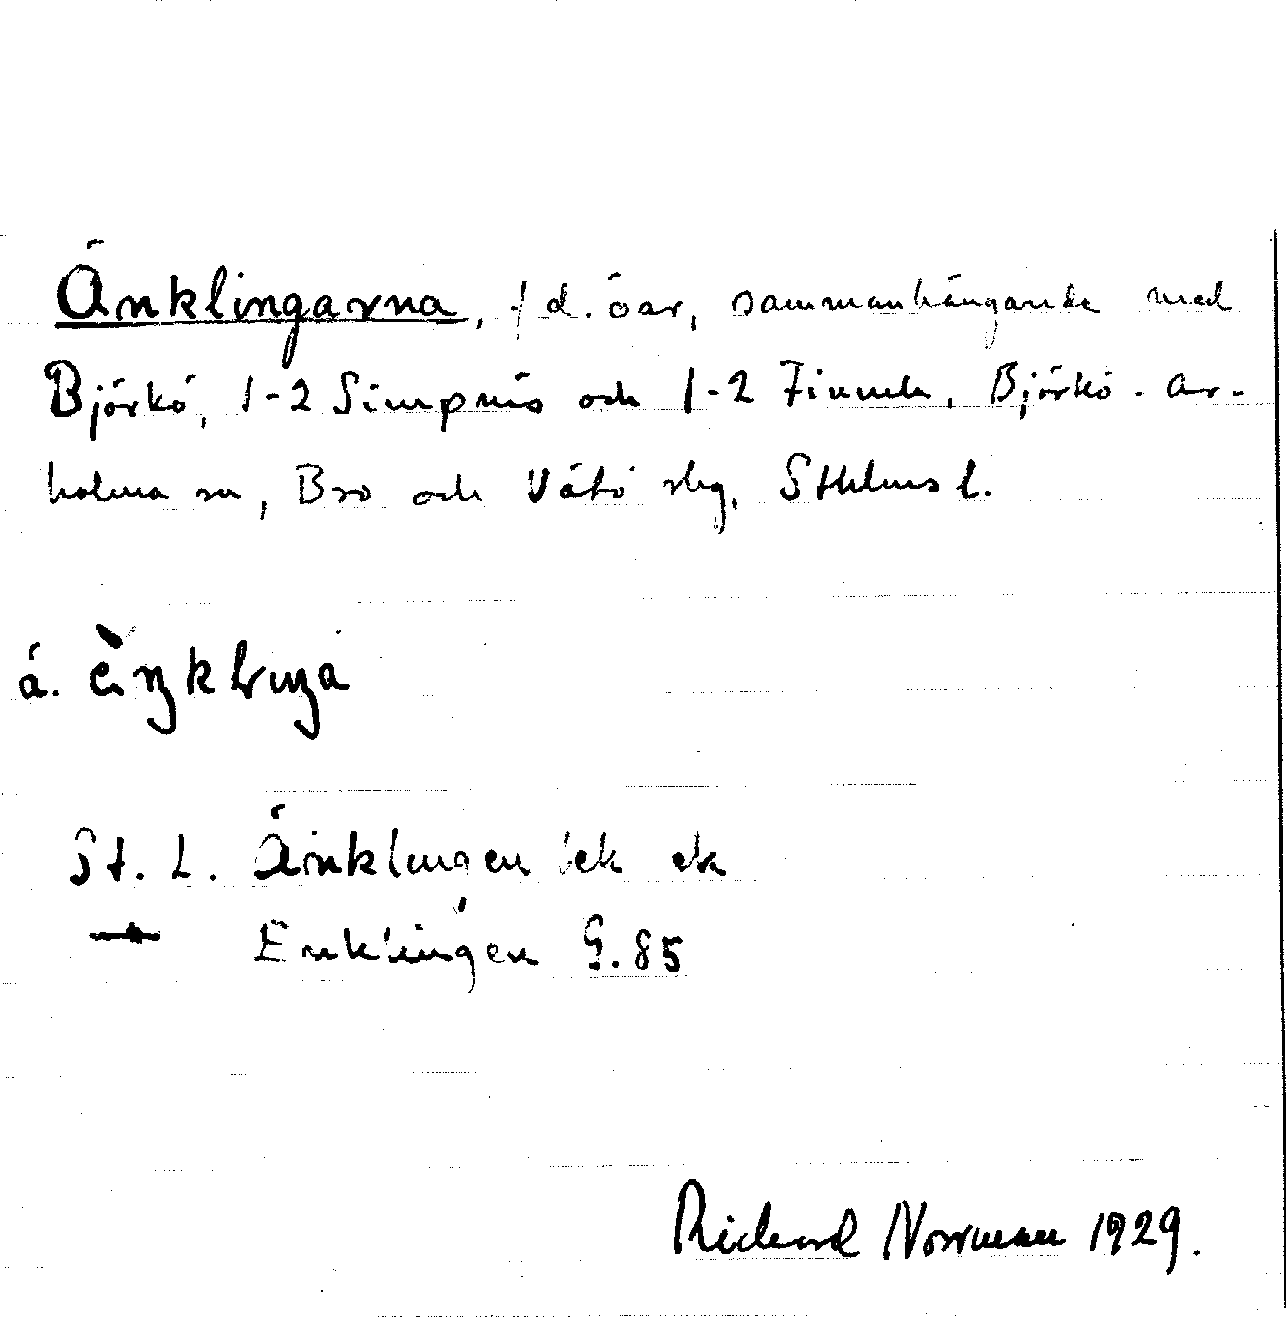 Änklingarna, f d. öar, sammanhängande med
Björkö, 1-2 Simpnäs och 1-2 Finnele, Björkö-Ar-
holma sn, Bro och Vätö skg, Sthlms l.
á.
St. L. Änklingen ek
Enklingen G.85
Richard Norrman 1929.